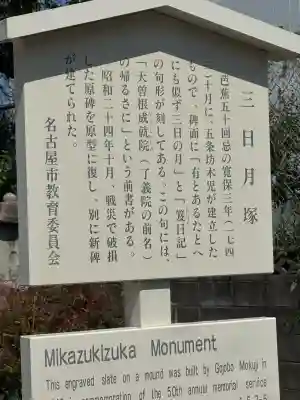 三日月塚
芭蕉五十回忌の寛保三年（一七四
三）十月に、五条坊木児が建立した
もので、碑面に「有とあるたとへ
にも似ず三日の月」と「笈日記」
の句形が刻してある。この句には、
「大曽根成就院（了義院の前名）
の帰るさに」という前書がある。
昭和二十四年十月、戦災で破損
した原碑を原型に復し、別に新碑
が建てられた。
名古屋市教育委員会
Mikazukizuka Monument
This engraved slate on a mound was built by Gojobo Mokuji in
commemoration of the 50th annual memorial service